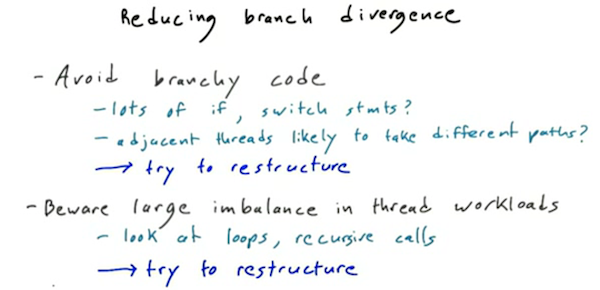 Reducing branch divergence
- Avoid branchy code
- lots of if, switch stmts?
- adjacent threads likely to take different paths?
→ try to restructure
- Beware large imbalance in thread workloads
- look at loops, recursive calls
→ try to restructure